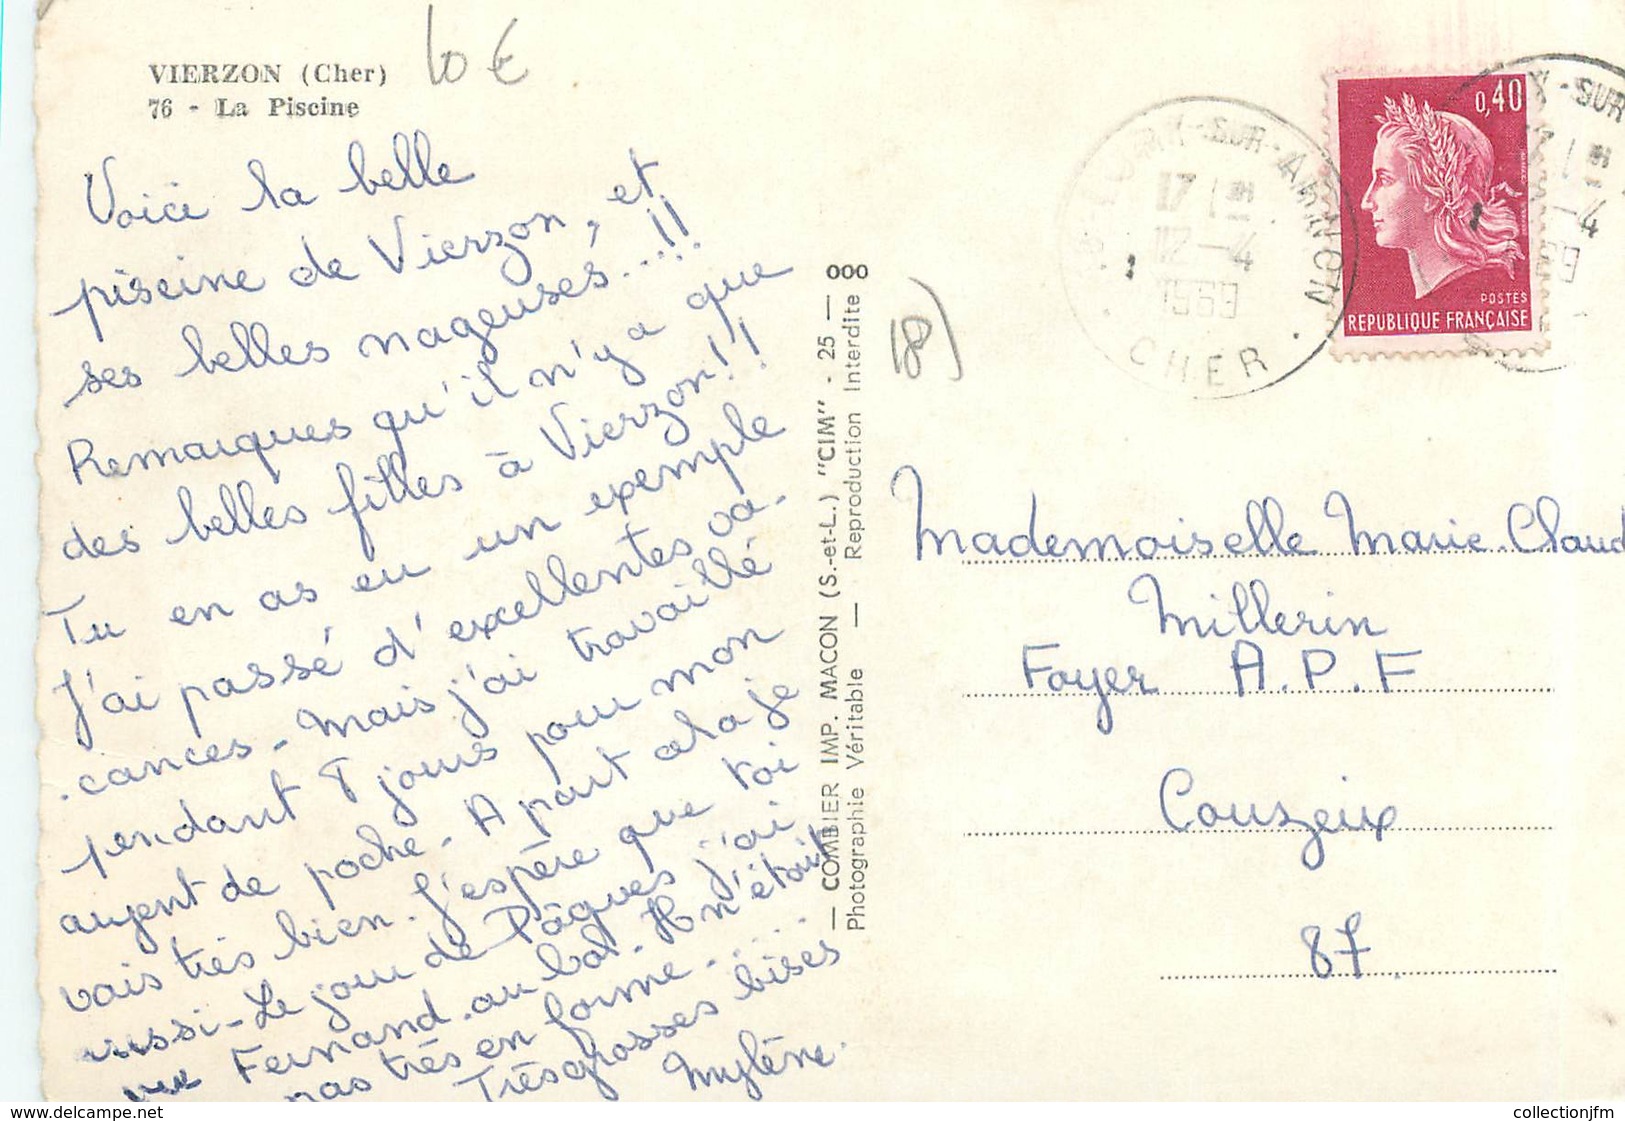 VIERZON (Cher)
76 - La Piscine
10 €
Voici la belle
piscine de Vierzon, et
ses belles nageuses....!!
Remarques qu'il n'y a que
des belles filles à Vierzon!!
Tu en as eu un exemple
J'ai passé d'excellentes va-
cances - Mais j'ai travaillé
pendant 8 jours pour mon
argent de poche - A part cela je
vais très bien - J'espère que toi
aussi - Le jour de Pâques j'ai
vu Fernand au bal - Il n'était
pas très en forme - ....
Très grosses bises
Mylène.
— COMBIER IMP. MACON (S.-et-L.) "CIM" - 25 — 000
Photographie Véritable — Reproduction Interdite
18)
LURY-SUR-ARNON
17 H
12-4
1969
CHER
0,40
POSTES
REPUBLIQUE FRANÇAISE
Y-SUR
-4
69
Mademoiselle Marie-Claud
Millerin
Foyer A.P.F
Couzeix
87
collectionjfm
collectionjfm